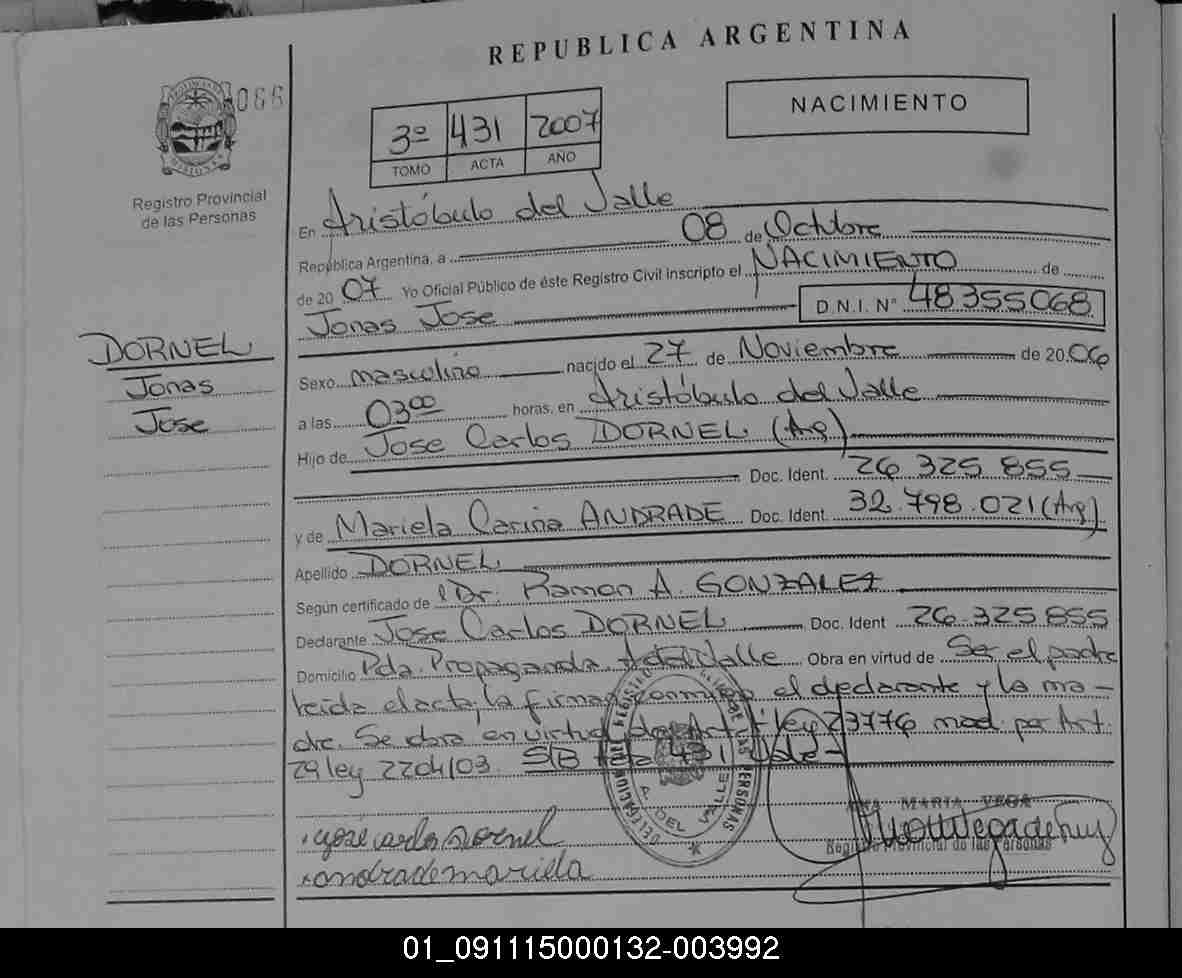 REPUBLICA ARGENTINA
066
MISIONES
Registro Provincial
de las Personas
NACIMIENTO
3º 431 2007
TOMO ACTA AÑO
En Aristóbulo del Valle
República Argentina, a 08 de Octubre
de 20 07 Yo Oficial Público de éste Registro Civil inscripto el NACIMIENTO de
Jonas Jose D.N.I. Nº 48355068
DORNEL
Jonas
Jose
Sexo masculino nacido el 27 de Noviembre de 20 06
a las 03 00 horas, en Aristóbulo del Valle
Hijo de Jose Carlos DORNEL (Arg)
Doc. Ident. 26 325 855
y de Mariela Carina ANDRADE Doc. Ident. 32.798.021 (Arg)
Apellido DORNEL
Según certificado de Dr. Ramon A. GONZALEZ
Declarante Jose Carlos DORNEL Doc. Ident 26.325.855
Domicilio Pda. Propaganda A del Valle Obra en virtud de Ser el padre
leida el acta, la firman conmigo el declarante y la ma-
dre. Se obra en virtud del Art ley 23776 mod. por Art.
29 ley 2204/03. S/B 431 Vale-
DELEGACION REGISTRO DE LAS PERSONAS
A. DEL VALLE
ANA MARIA VEGA
Registro Provincial de las Personas
José carlos Dornel
andrade mariela
01_091115000132-003992